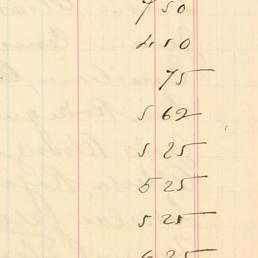 7 50
4 50
75
5 62
5 25
5 25
5 25
6 25